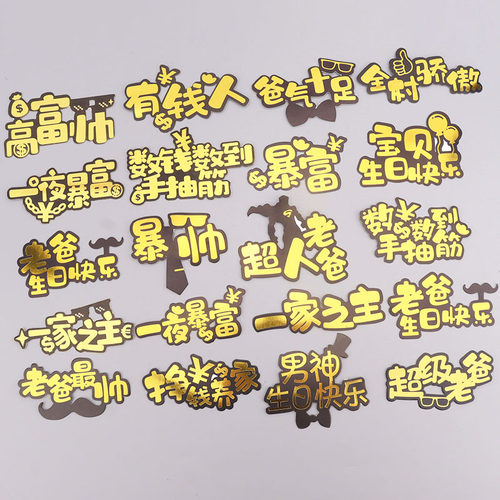 高富帅
有钱人
爸气十足
全村骄傲
一夜暴富
数钱数到
手抽筋
暴富
宝贝
生日快乐
老爸
生日快乐
暴帅
超人老爸
数钱数到
手抽筋
一家之主
一夜暴富
一家之主
老爸
生日快乐
老爸最帅
挣钱养家
男神
生日快乐
超级老爸